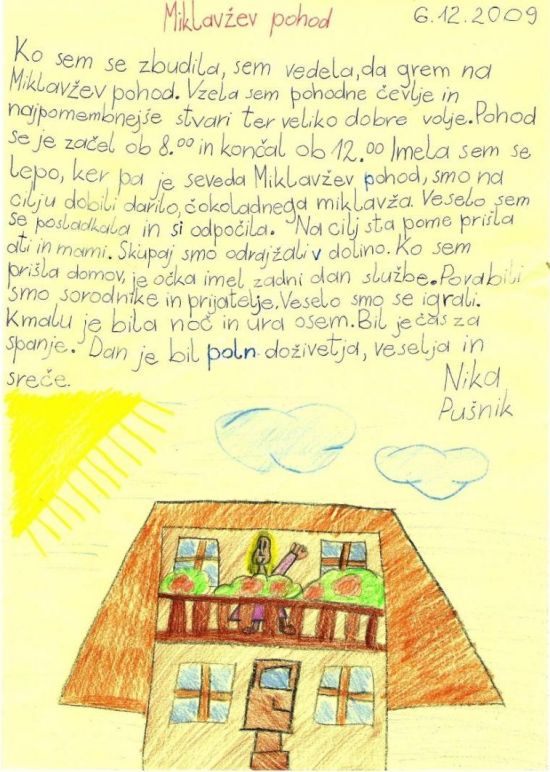 Miklavžev pohod 6.12.2009
Ko sem se zbudila, sem vedela, da grem na
Miklavžev pohod. Vzela sem pohodne čevlje in
najpomembnejše stvari ter veliko dobre volje. Pohod
se je začel ob 8.00 in končal ob 12.00 Imela sem se
lepo, ker pa je seveda Miklavžev pohod, smo na
cilju dobili darilo, čokoladnega miklavža. Veselo sem
se posladkala in si odpočila. Na cilj sta pome prišla
ati in mami. Skupaj smo odrajžali v dolino. Ko sem
prišla domov, je očka imel zadni dan službe. Povabili
smo sorodnike in prijatelje. Veselo smo se igrali.
Kmalu je bila noč in ura osem. Bil je čas za
spanje. Dan je bil poln doživetja, veselja in
sreče.
Nika
Pušnik